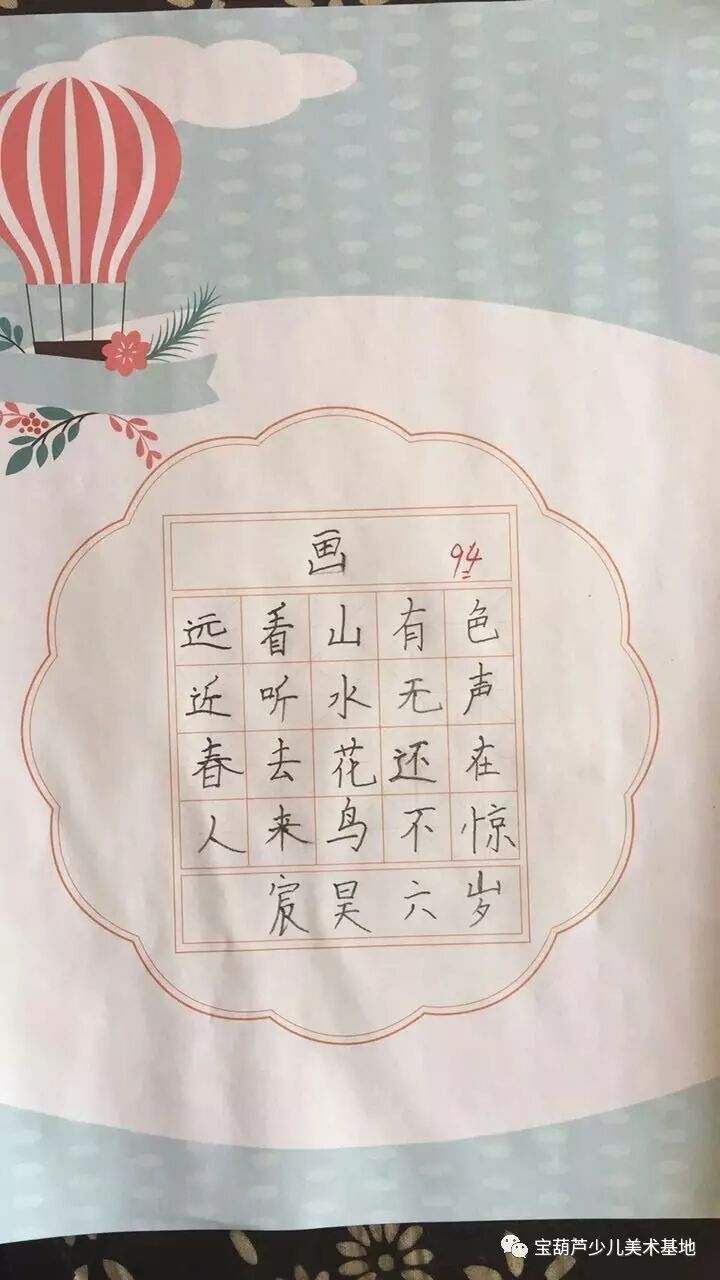 画 94
远看山有色
近听水无声
春去花还在
人来鸟不惊
宸昊六岁
宝葫芦少儿美术基地